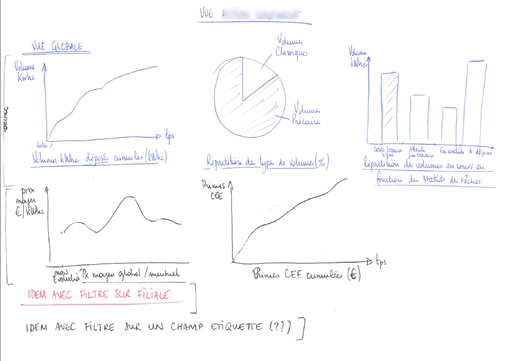 VUE
VUE GLOBALE
Volume
kWhc
tps
Volumes kWhc déposés cumulés (kWhc)
Volumes
Classiques
Volumes
Précaires
Répartition des types de volumes (%)
Volumes
kWhc
Répartition de volumes en cours en
fonction des statuts de tâches
prix
moyen
€/kWhc
Px moyen global / mensuel
Primes
CEE
tps
Primes CEE cumulées (€)
IDEM AVEC FILTRE SUR FILIALE
IDEM AVEC FILTRE SUR UN CHAMP ETIQUETTE (??)